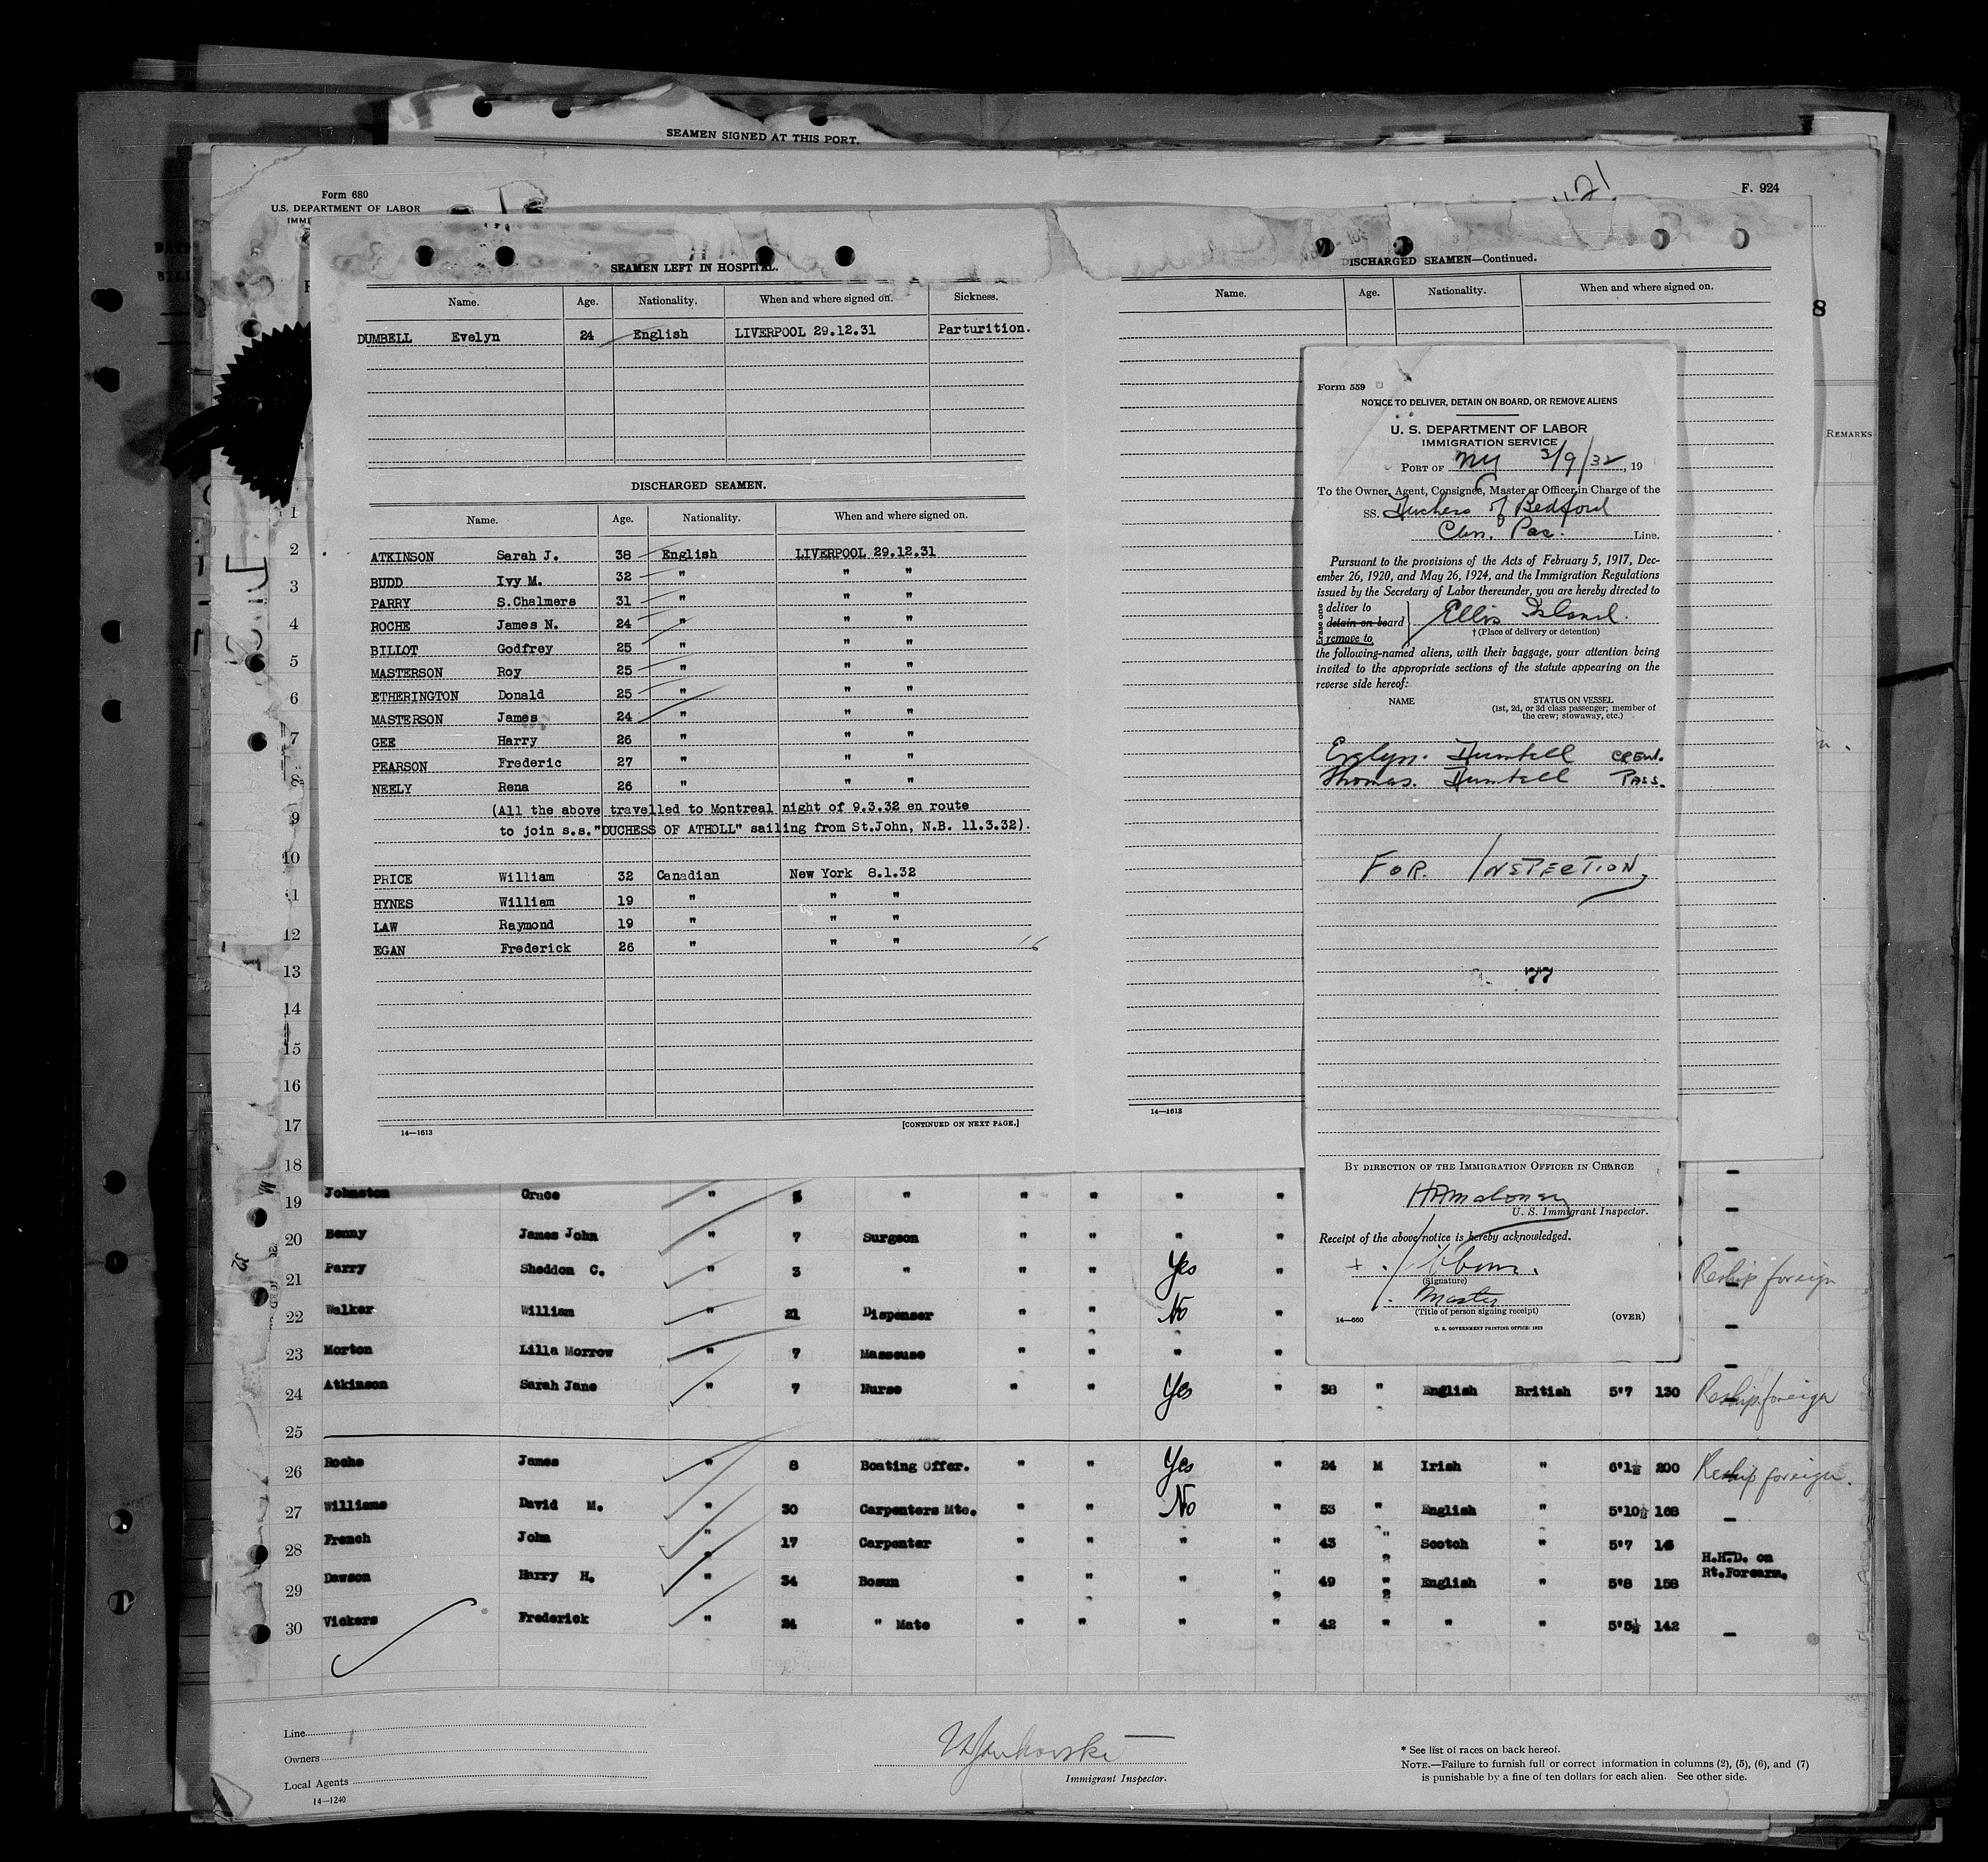 SEAMEN SIGNED AT THIS PORT.
Form 680
U.S. DEPARTMENT OF LABOR
F. 924
SEAMEN LEFT IN HOSPITAL.
Name. Age. Nationality. When and where signed on. Sickness.
DUMBELL Evelyn 24 English LIVERPOOL 29.12.31 Parturition.
DISCHARGED SEAMEN.
Name. Age. Nationality. When and where signed on.
ATKINSON Sarah J. 38 English LIVERPOOL 29.12.31
BUDD Ivy M. 32 " " "
PARRY S.Chalmers 31 " " "
ROCHE James N. 24 " " "
BILLOT Godfrey 25 " " "
MASTERSON Roy 25 " " "
ETHERINGTON Donald 25 " " "
MASTERSON James 24 " " "
GEE Harry 26 " " "
PEARSON Frederic 27 " " "
NEELY Rena 26 " " "
(All the above travelled to Montreal night of 9.3.32 en route
to join s.s."DUCHESS OF ATHOLL" sailing from St.John, N.B. 11.3.32).
PRICE William 32 Canadian New York 8.1.32
HYNES William 19 " " "
LAW Raymond 19 " " "
EGAN Frederick 26 " " "
14—1613 [CONTINUED ON NEXT PAGE.]
DISCHARGED SEAMEN—Continued.
Name. Age. Nationality. When and where signed on.
14—1613
8
REMARKS
Form 559
NOTICE TO DELIVER, DETAIN ON BOARD, OR REMOVE ALIENS
U. S. DEPARTMENT OF LABOR
IMMIGRATION SERVICE
PORT OF NY 3/9/32, 19
To the Owner, Agent, Consignee, Master or Officer in Charge of the
SS. Duchess of Bedford
Can. Pac. Line.
Pursuant to the provisions of the Acts of February 5, 1917, Dec-
ember 26, 1920, and May 26, 1924, and the Immigration Regulations
issued by the Secretary of Labor thereunder, you are hereby directed to
Erase one
deliver to
detain on board
remove to
Ellis Island.
† (Place of delivery or detention)
the following-named aliens, with their baggage, your attention being
invited to the appropriate sections of the statute appearing on the
reverse side hereof:
NAME STATUS ON VESSEL
(1st, 2d, or 3d class passenger; member of
the crew; stowaway, etc.)
Evelyn. Dumbell CREW.
Thomas. Dumbell PASS.
FOR INSPECTION
77
BY DIRECTION OF THE IMMIGRATION OFFICER IN CHARGE
U. S. Immigrant Inspector.
Receipt of the above notice is hereby acknowledged.
(Signature)
Master
(Title of person signing receipt)
14—660 (OVER)
U. S. GOVERNMENT PRINTING OFFICE: 1929
1
2
3
4
5
6
7
8
9
10
11
12
13
14
15
16
17
18
19 Johnston Grace " " " " " "
20 Benny James John " 7 Surgeon " " " "
21 Parry Sheddon C. " 3 " " " Yes " Reship foreign
22 Walker William " 21 Dispenser " " No "
23 Morton Lilla Morrow " 7 Masseuse " " " "
24 Atkinson Sarah Jane " 7 Nurse " " Yes " 38 " English British 5'7 130 Reship foreign
25
26 Roche James " 8 Boating Offer. " " Yes " 24 M Irish " 6'1½ 200 Reship foreign.
27 Williams David M. " 30 Carpenters Mte. " " No " 53 " English " 5'10½ 168
28 French John " 17 Carpenter " " " " 43 " Scotch " 5'7
29 Dawson Harry H. " 34 Bosun " " " " 49 " English " 5'8 158 H.H.D. on Rt.Forearm.
30 Vickers Frederick " 24 " Mate " " " " 42 " " " 5'5½ 142
Line
Owners
Local Agents
14—1240
Immigrant Inspector.
* See list of races on back hereof.
NOTE.—Failure to furnish full or correct information in columns (2), (5), (6), and (7)
is punishable by a fine of ten dollars for each alien. See other side.